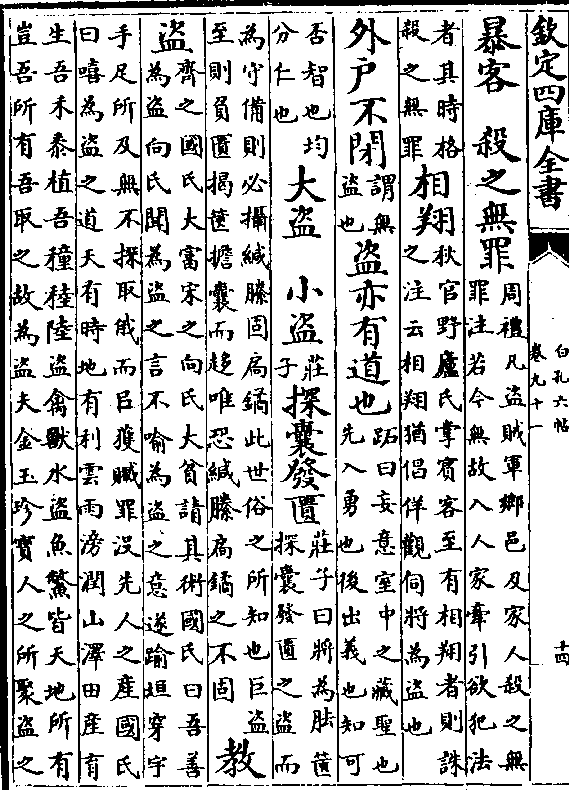 欽定四庫全書
白孔六帖
卷九十一
十四
暴客 殺之無罪
周禮凡盜賊軍鄉邑及家人殺之無
罪注若今無故入人家牽引欲犯法
者其時格
殺之無罪
相翔
秋官野廬氏掌賓客至有相翔者則誅
之注云相翔猶倡佯觀伺將為盜也
外户不閉
謂無
盜也
盜亦有道也
跖曰妄意室中之藏聖也
先入勇也後出義也知可
否智也均
分仁也
大盜 小盜
莊
子
探囊發匱
莊子曰將為胠篋
探囊發匱之盜而
為守備則必攝緘縢固扄鐍此世俗之所知也巨盜
至則負匱揭篋擔囊而趍唯恐緘縢扄鐍之不固
教
盜
齊之國氏大富宋之向氏大貧請其術國氏曰吾善
為盜向氏聞為盜之言不喻為盜之意遂踰垣穿宇
手足所及無不探取俄而㠯獲贓罪沒先人之產國氏
曰嘻為盜之道天有時地有利雲雨滂潤山澤田產育
生吾禾黍植吾穜稑陸盜禽獸水盜魚鱉皆天地所有
豈吾所有吾取之故為盜夫金玉珍寳人之所聚盜之